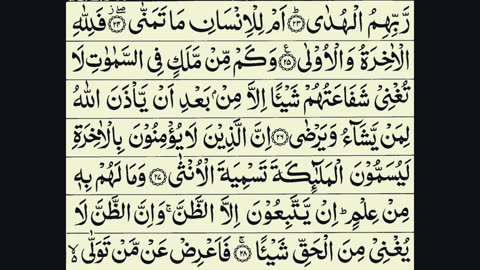 رَّبِّهِمُ الْهُدٰى ﴿۲۳﴾ اَمْ لِلْاِنْسَانِ مَا تَمَنّٰى ﴿۲۴﴾ فَلِلّٰهِ
الْاٰخِرَةُ وَالْاُوْلٰى ﴿۲۵﴾ وَكَمْ مِّنْ مَّلَكٍ فِى السَّمٰوٰتِ لَا
تُغْنِىْ شَفَاعَتُهُمْ شَيْئًا اِلَّا مِنْۢ بَعْدِ اَنْ يَّاْذَنَ اللّٰهُ
لِمَنْ يَّشَآءُ وَيَرْضٰى ﴿۲۶﴾ اِنَّ الَّذِيْنَ لَا يُؤْمِنُوْنَ بِالْاٰخِرَةِ
لَيُسَمُّوْنَ الْمَلٰٓئِكَةَ تَسْمِيَةَ الْاُنْثٰى ﴿۲۷﴾ وَمَا لَهُمْ بِهٖ
مِنْ عِلْمٍ ؕ اِنْ يَّتَّبِعُوْنَ اِلَّا الظَّنَّ ۚ وَاِنَّ الظَّنَّ لَا
يُغْنِىْ مِنَ الْحَقِّ شَيْئًا ۚ ﴿۲۸﴾ فَاَعْرِضْ عَنْ مَّنْ تَوَلّٰى ۙ